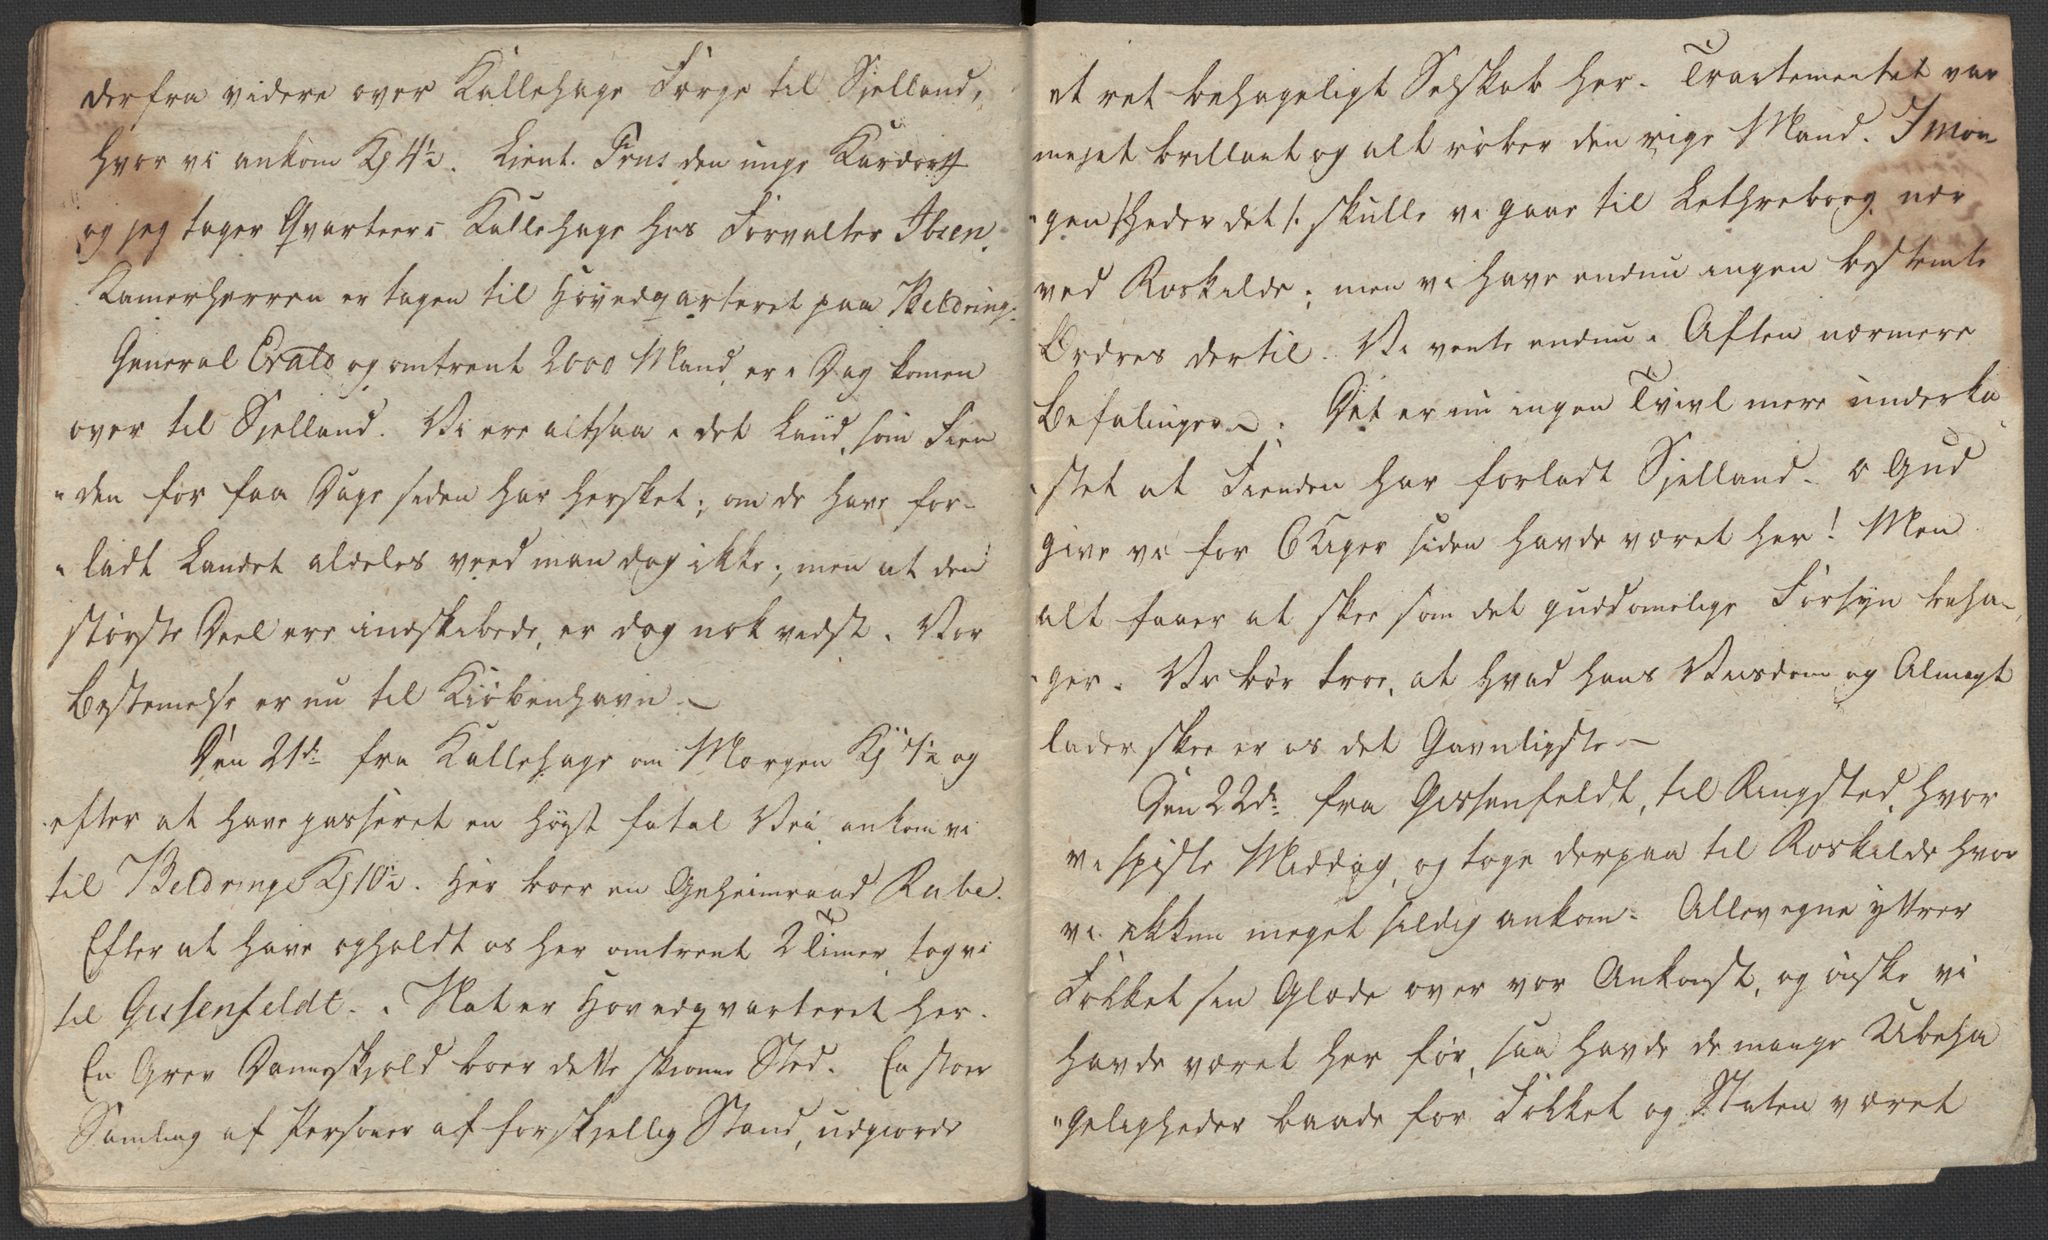 derfra videre over Kallehauge Færge til Sjelland,
hvor vi ankom Kl 4½. Lieut. Frus den unge Kardorff
og jeg tager Qvarteer i Kallehauge hos Forvalter Ibsen.
Kamerherren er tagen til Hovedqvarteret paa Beldringe.
General Erato og omtrent 2000 Mand er i Dag komen
over til Sjelland. Vi ere altsaa i det Land, som Fien
„den for faa Dage siden har hersket; om de have for-
„ladt Landet aldeles veed man dog ikke; men at den
største Deel ere indskibede, er dog nok vidst. Vor
Bestemelse er nu til Kiøbenhavn. –
Den 21de fra Kallehauge om Morgen Kl ½ og
efter at have passeret en høyst fatal Vei ankom vi
til Beldringe Kl 10½. Her boer en Geheimraad Rabe.
Efter at have opholdt os her omtrent 2 Timer, tog vi
til Gissenfeldt. I Nat er Hovedqvarteret her.
En Grev Danneskjold boer dette skionne Sted. En stor
Samling af Personer af forskjellig Stand, udgiorde
et ret behageligt Selskab her. Tractementet var
meget brillant og alt røber den rige Mand. I mor-
„gen /: heder det :/ skulle vi gaae til Lethreborg nær
ved Roskilde; men vi have endnu ingen bestemte
Ordres dertil. Vi vente endnu i Aften nærmere
Befalinger. Det er nu ingen Tvivl mere underka
„stet at Fienden har forladt Sjelland. O Gud
give vi for 6 Uger siden havde været her! Men
alt faaer at skee som det guddomelige Forsyn beha-
„ger. Vi bør troe, at hvad hans Viisdom og Almagt
lader skee er os det Gavnligste –
Den 22de fra Gissenfeldt, til Ringsted, hvor
vi spiste Middag, og toge derpaa til Roskilde hvor
vi ikkun meget sildig ankom. Allevegne yttrer
Folket sin Glæde over vor Ankomst, og ønske vi
havde været her før, saa havde de mange Ubeha
„geligheder baade for Folket og Staten været